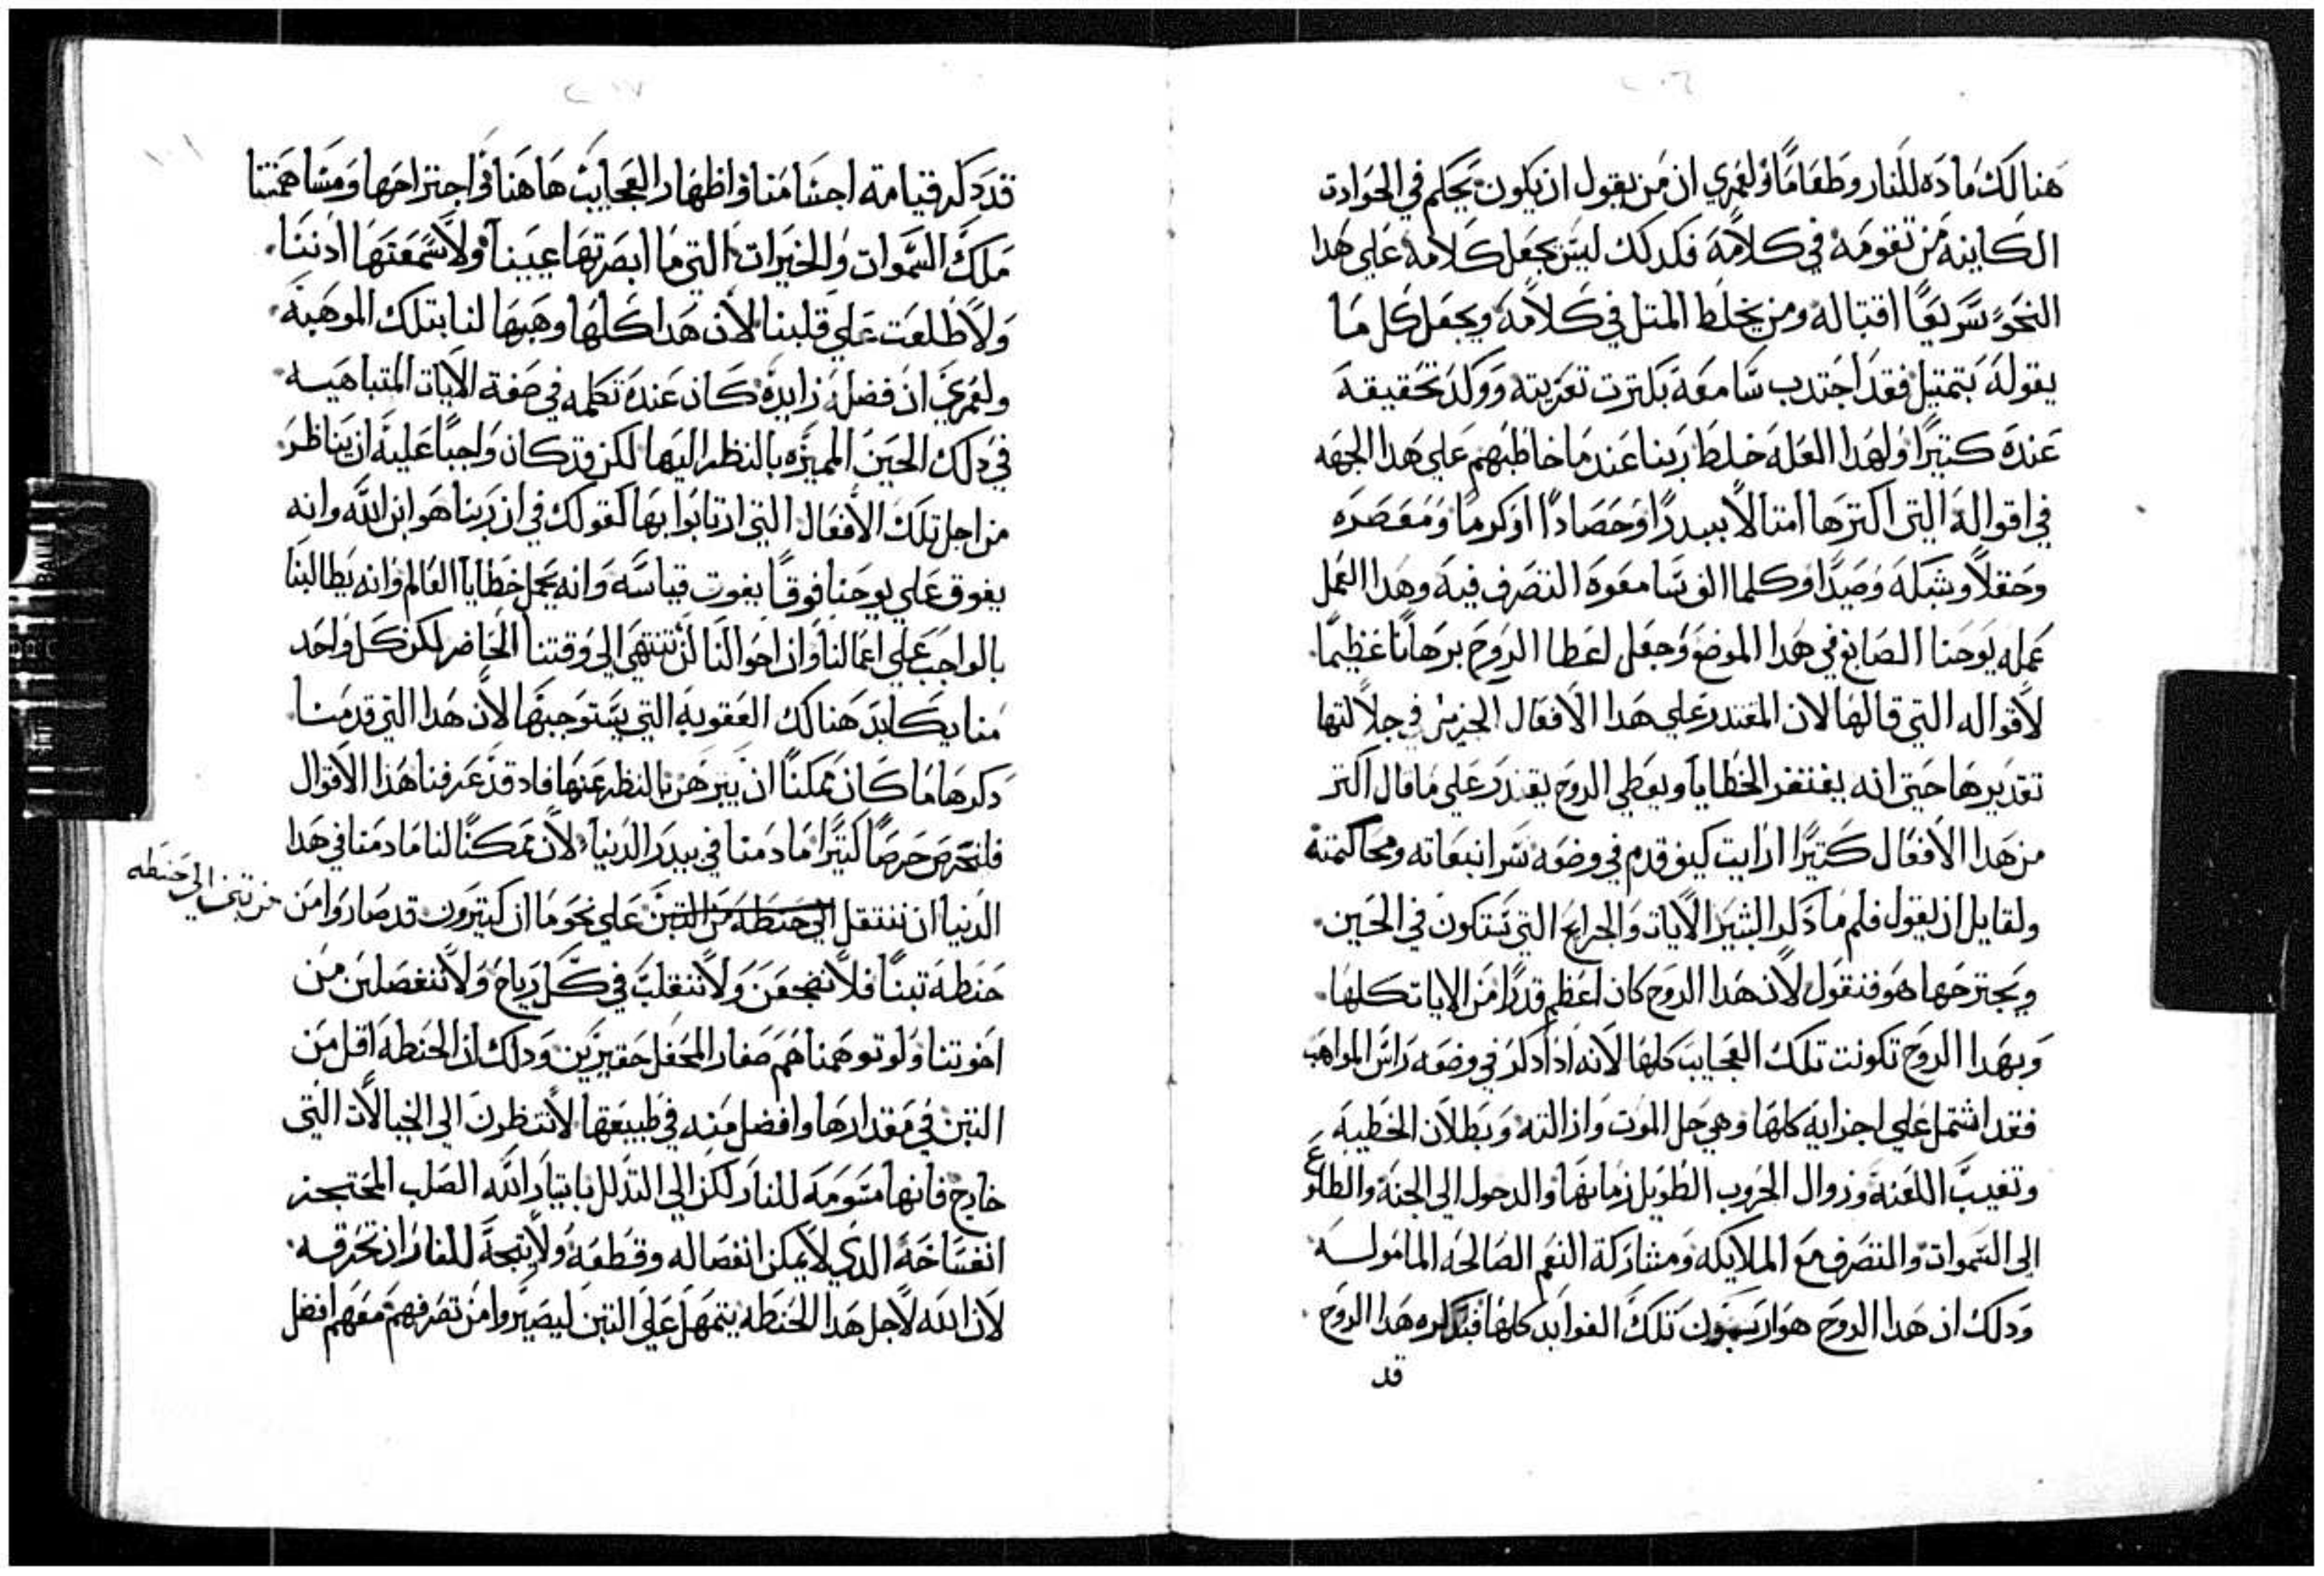 هنالك ماده للنار وطعامًا ولعمري ان من يقول ان يكون يحكم في الحوادت
الكاينه من تقومه في كلامه فكدلك ليس يجعل كلامه علي هدا
النحو سريعًا اقتباله ومن يخلط المتل في كلامه ويجعل كل ما
يقوله بتمتيل فقد اجتدب سامعه بكترت تعزيته ووكد تحقيقه
عنده كتيرًا ولهدا العله خلط ربنا عند ما خاطبهم علي هدا الجهه
في اقواله التي اكترها امتالا ببيدرًا وحصادًا او كرمًا ومعصره
وحقلاً وشبكه وصيدًا وكلما الف سامعوه التصرف فيه وهدا العمل
عمله يوحنا الصابغ في هدا الموضع وجعل اعطا الروح برهانًا عظيمًا
لاقواله التي قالها لان المقتدر علي هدا الافعال الجزيل في جلالتها
تقديرها حتى انه يغتفر الخطايا ويعطي الروح يقتدر علي ما قال اكتر
من هدا الافعال كتيرًا ارايت كيف قدم في وضعه سر انبعاته ومحاكمته
ولقايل ان يقول فلم ما دكر البشير الايات والجرايح التي تتكون في الحين
ويجترحها هو فنقول لان هدا الروح كان اعظم قدرًا من الايات كلها
وبهدا الروح تكونت تلك العجايب كلها لانه اذا دكر في وضعه راس المواهب
فقد اشتمل علي اجزايه كلها وهي حل الموت وازالته وبطلان الخطيه
وتغيب اللعنه وزوال الحروب الطويل زمانها والدحول الي الجنه والطلوع
الى السموات والتصرف مع الملايكه ومشاركة النعم الصالحه المامولـه
ودلك ان هدا الروح هو اربون تلك الفوايد كلها فبدكره هدا الروح
قد
قد دكر قيامة اجسامنا واظهار العجايب هاهنا واجتراحها ومساهمتنا
ملك السموات والخيرات التي ما ابصرتها عيينا ولا سمعتها ادننا
ولا طلعت علي قلبنا لان هدا كلها وهبها لنا بتلك الموهبه
ولعمري ان فضله زايده كان عنده تكلمه في صفة الايات المتباهيـه
في دلك الحين المميزه بالنظر اليها لكن قد كان واجبًا عليه ان يناظر
من اجل تلك الافعال التي ارتابوا بها كقولك في ان ربنا هو ابن الله وانه
يفوق علي يوحنا فوقًا يفوت قياسه وانه يحمل خطايا العالم وانه يطالبنا
بالواجب علي اعمالنا وان احوالنا لن تنتهي الي وقتنا الحاضر لكن كل واحد
منا يكابد هنالك العقوبه التي يستوجبها لان هدا التي قدمنا
دكرها ما كان ممكنًا ان يبرهن بالنظر عنها فاد قد عرفنا هذا الاقوال
فلنحرص حرصًا كتيرًا ما دمنا في بيدر الدنيا لان ممكنًا لنا ما دمنا في هدا
الدنيا ان ننتقل الي حنطه من التبن علي نحو ما ان كتيرون قد صاروا من
من تبن الي حنطه
حنطه تبنًا فلا نضجعن ولا ننقلب في كل رياح ولا ننفصلن من
اخوتنا ولو توهمناهم صغار المحفل حقيرين ودلك ان الحنطه اقل من
التبن في مقدارها وافضل منه في طبيعتها لا تنظرن الي الخيالات التي
خارج فانها متومه للنار لكن الي التدلل بايتار الله الصلب المحتجز
انفساخه الدي لا يمكن انفصاله وقطعه ولا يتجه للنار ان تحرقه
لان الله لاجل هدا الحنطه يتمهل علي التبن ليصيروا من تصرفهم معهم افضل